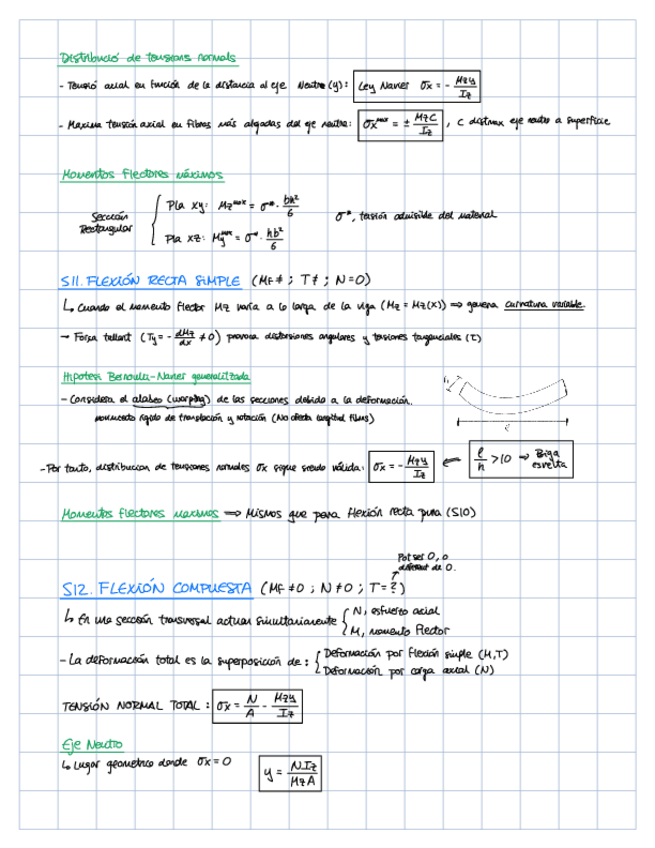 Distribució de tensions normals
- Tensió axial en función de la distancia al eje Neutro (y): Ley Navier σx = - Mzy / Iz
- Maxima tensión axial en fibras más alejadas del eje neutro: σx^max = ± MzC / Iz , C dist max eje neutro a superficie
Momentos Flectores máximos
Sección Rectangular
Pla xy: Mz^max = σ*· bh² / 6
Pla xz: My^max = σ*· hb² / 6
σ*, tensión admisible del material
S11. FLEXIÓN RECTA SIMPLE (MF≠ ; T≠ ; N=0)
↳ Cuando el momento flector Mz varía a lo largo de la viga (Mz = Mz(x)) ⇒ genera curvatura variable.
→ Força tallant (Ty = - dMz / dx ≠ 0) provoca distorsiones angulares y tensiones tangenciales (τ)
Hipotesi Bernoulli-Navier generalitzada
- Considera el alabeo (warping) de las secciones debido a la deformación.
movimiento rígido de translación y rotación (No afecta longitud fibras)
h
ℓ
- Por tanto, distribucion de tensiones normales σx sigue siendo válida: σx = - Mzy / Iz ⇐ ℓ / h > 10 → Biga esvelta
Momentos flectores maximos ⇒ Mismos que para flexión recta pura (S10)
Pot ser 0, o
diferent de 0.
S12. FLEXIÓN COMPUESTA (MF ≠0 ; N ≠0 ; T=?)
↳ En una sección transversal actuan simultáneamente
N, esfuerzo axial
M, momento Flector
- La deformación total es la superposición de :
Deformación por flexión simple (M,T)
Deformación por carga axial (N)
TENSIÓN NORMAL TOTAL : σx = N / A - Mzy / Iz
Eje Neutro
↳ Lugar geometrico donde σx = 0
y = N.Iz / MzA